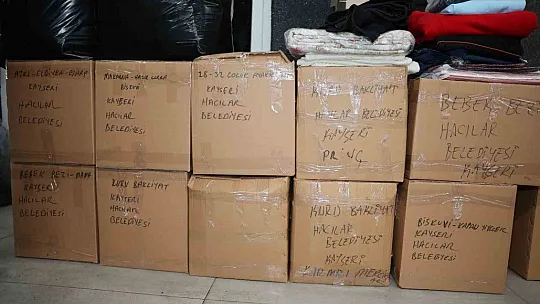 KAYSERİ
HACILAR
BELEDİYESİ
MAKARNA-HAZIR ÇORBA
KAYSERİ
HACILAR
BELEDİYESİ
28-32 ÇOCUK
KAYSERİ
HACILAR
BELEDİYESİ
KURU BAKLİYAT
HACILAR BELEDİYESİ
KAYSERİ
PRİNÇ
BEBEK BEZİ
HACILAR
BELEDİYESİ
KAYSERİ
BEBEK BEZİ-
KAYSERİ
HACILAR
BELEDİYESİ
KURU BAKLİYAT
KAYSERİ
HACILAR
BELEDİYESİ
KURU BAKLİYAT
HACILAR
BELEDİYESİ
KAYSERİ
KIRMIZI MERCİMEK
BİSKÜVİ-
KAYSERİ
HACILAR
BELEDİYESİ